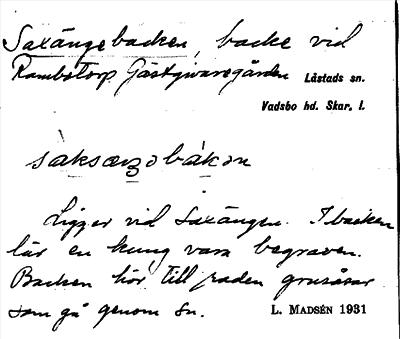 Saxängebacken, backe vid
Rambotorp Gästgivaregården Låstads sn.
Vadsbo hd. Skar. l.
saksæŋəbákən
Ligger vid Saxängen. I backen
lär en kung vara begraven.
Backen hör till raden grusåsar
som gå genom sn.
L. MADSÉN 1931